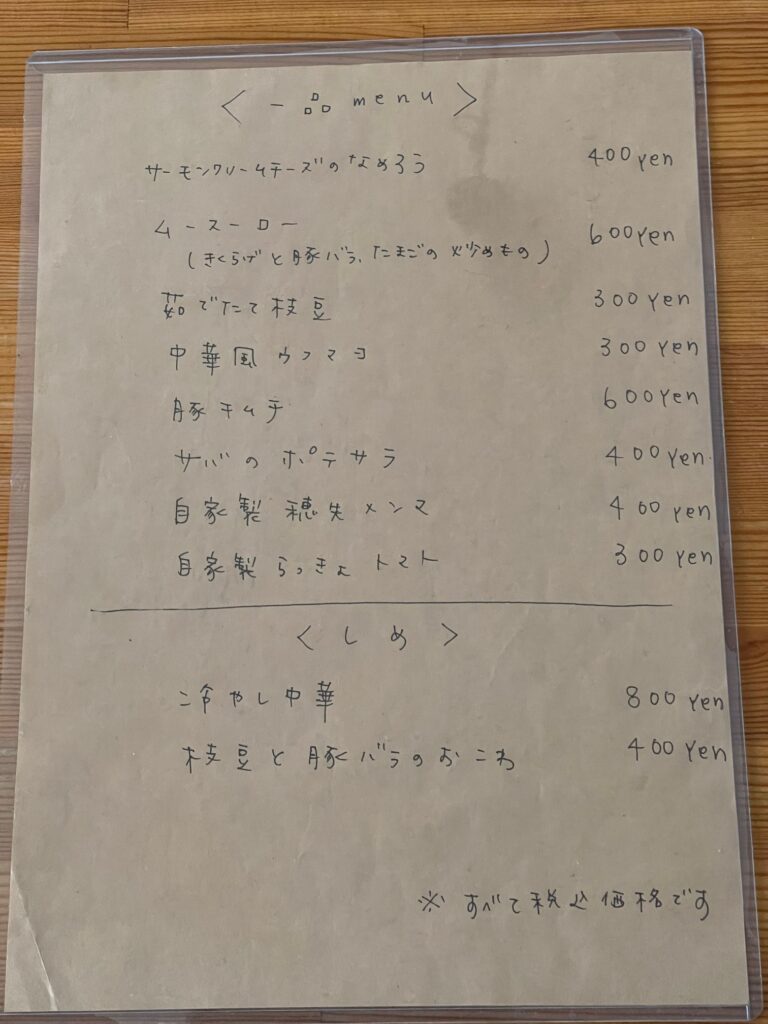 < 一品 menu >
サーモンクリームチーズのなめろう 400 yen
ムースーロー
(きくらげと豚バラ、たまごの炒めもの) 600 yen
茹でたて枝豆 300 yen
中華風ウフマヨ 300 yen
豚キムチ 600 yen
サバのポテサラ 400 yen
自家製 穂先メンマ 400 yen
自家製 らっきょトマト 300 yen
< しめ >
冷やし中華 800 yen
枝豆と豚バラのおこわ 400 yen
※ すべて税込価格です